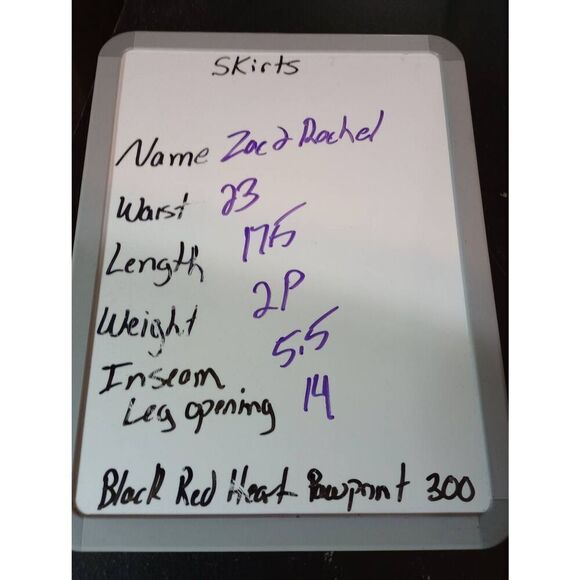 Skirts
Name Zac & Rachel
Waist 23
Length 17.5
Weight 2P
Inseam 5.5
Leg opening 14
Black Red Heart Pawprint 300